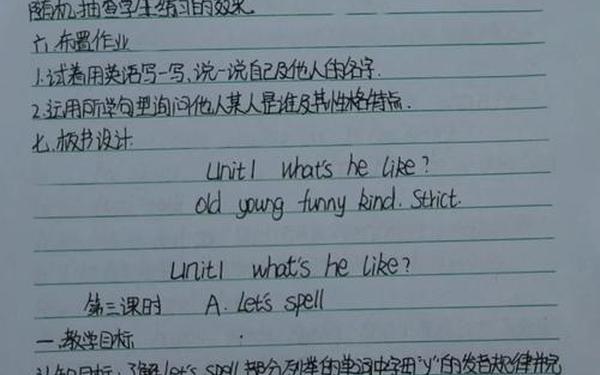 随机抽查学生练习的效果
六、布置作业
1.试着用英语写一写、说一说自己及他人的名字.
2.运用所学句型询问他人某人是谁及其性格特点.
七、板书设计
Unit1 what's he like?
old young funny kind. Strict.
Unit1 what's he like?
第三课时 A. Let's spell
一、教学目标
目标:了解let's spell部分列举的单词中字母"y"的发音规律并完